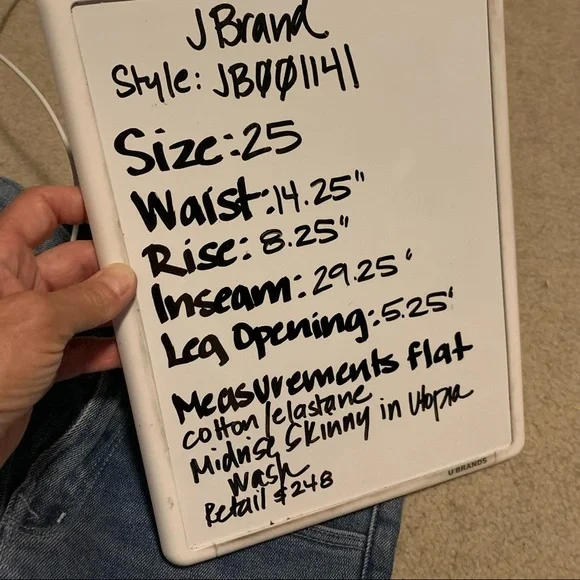 J Brand
Style: JB001141
Size: 25
Waist: 14.25"
Rise: 8.25"
Inseam: 29.25'
Leg Opening: 5.25'
Measurements flat
cotton/elastane
Midrise Skinny in Utopia
wash
Retail $248
U BRANDS